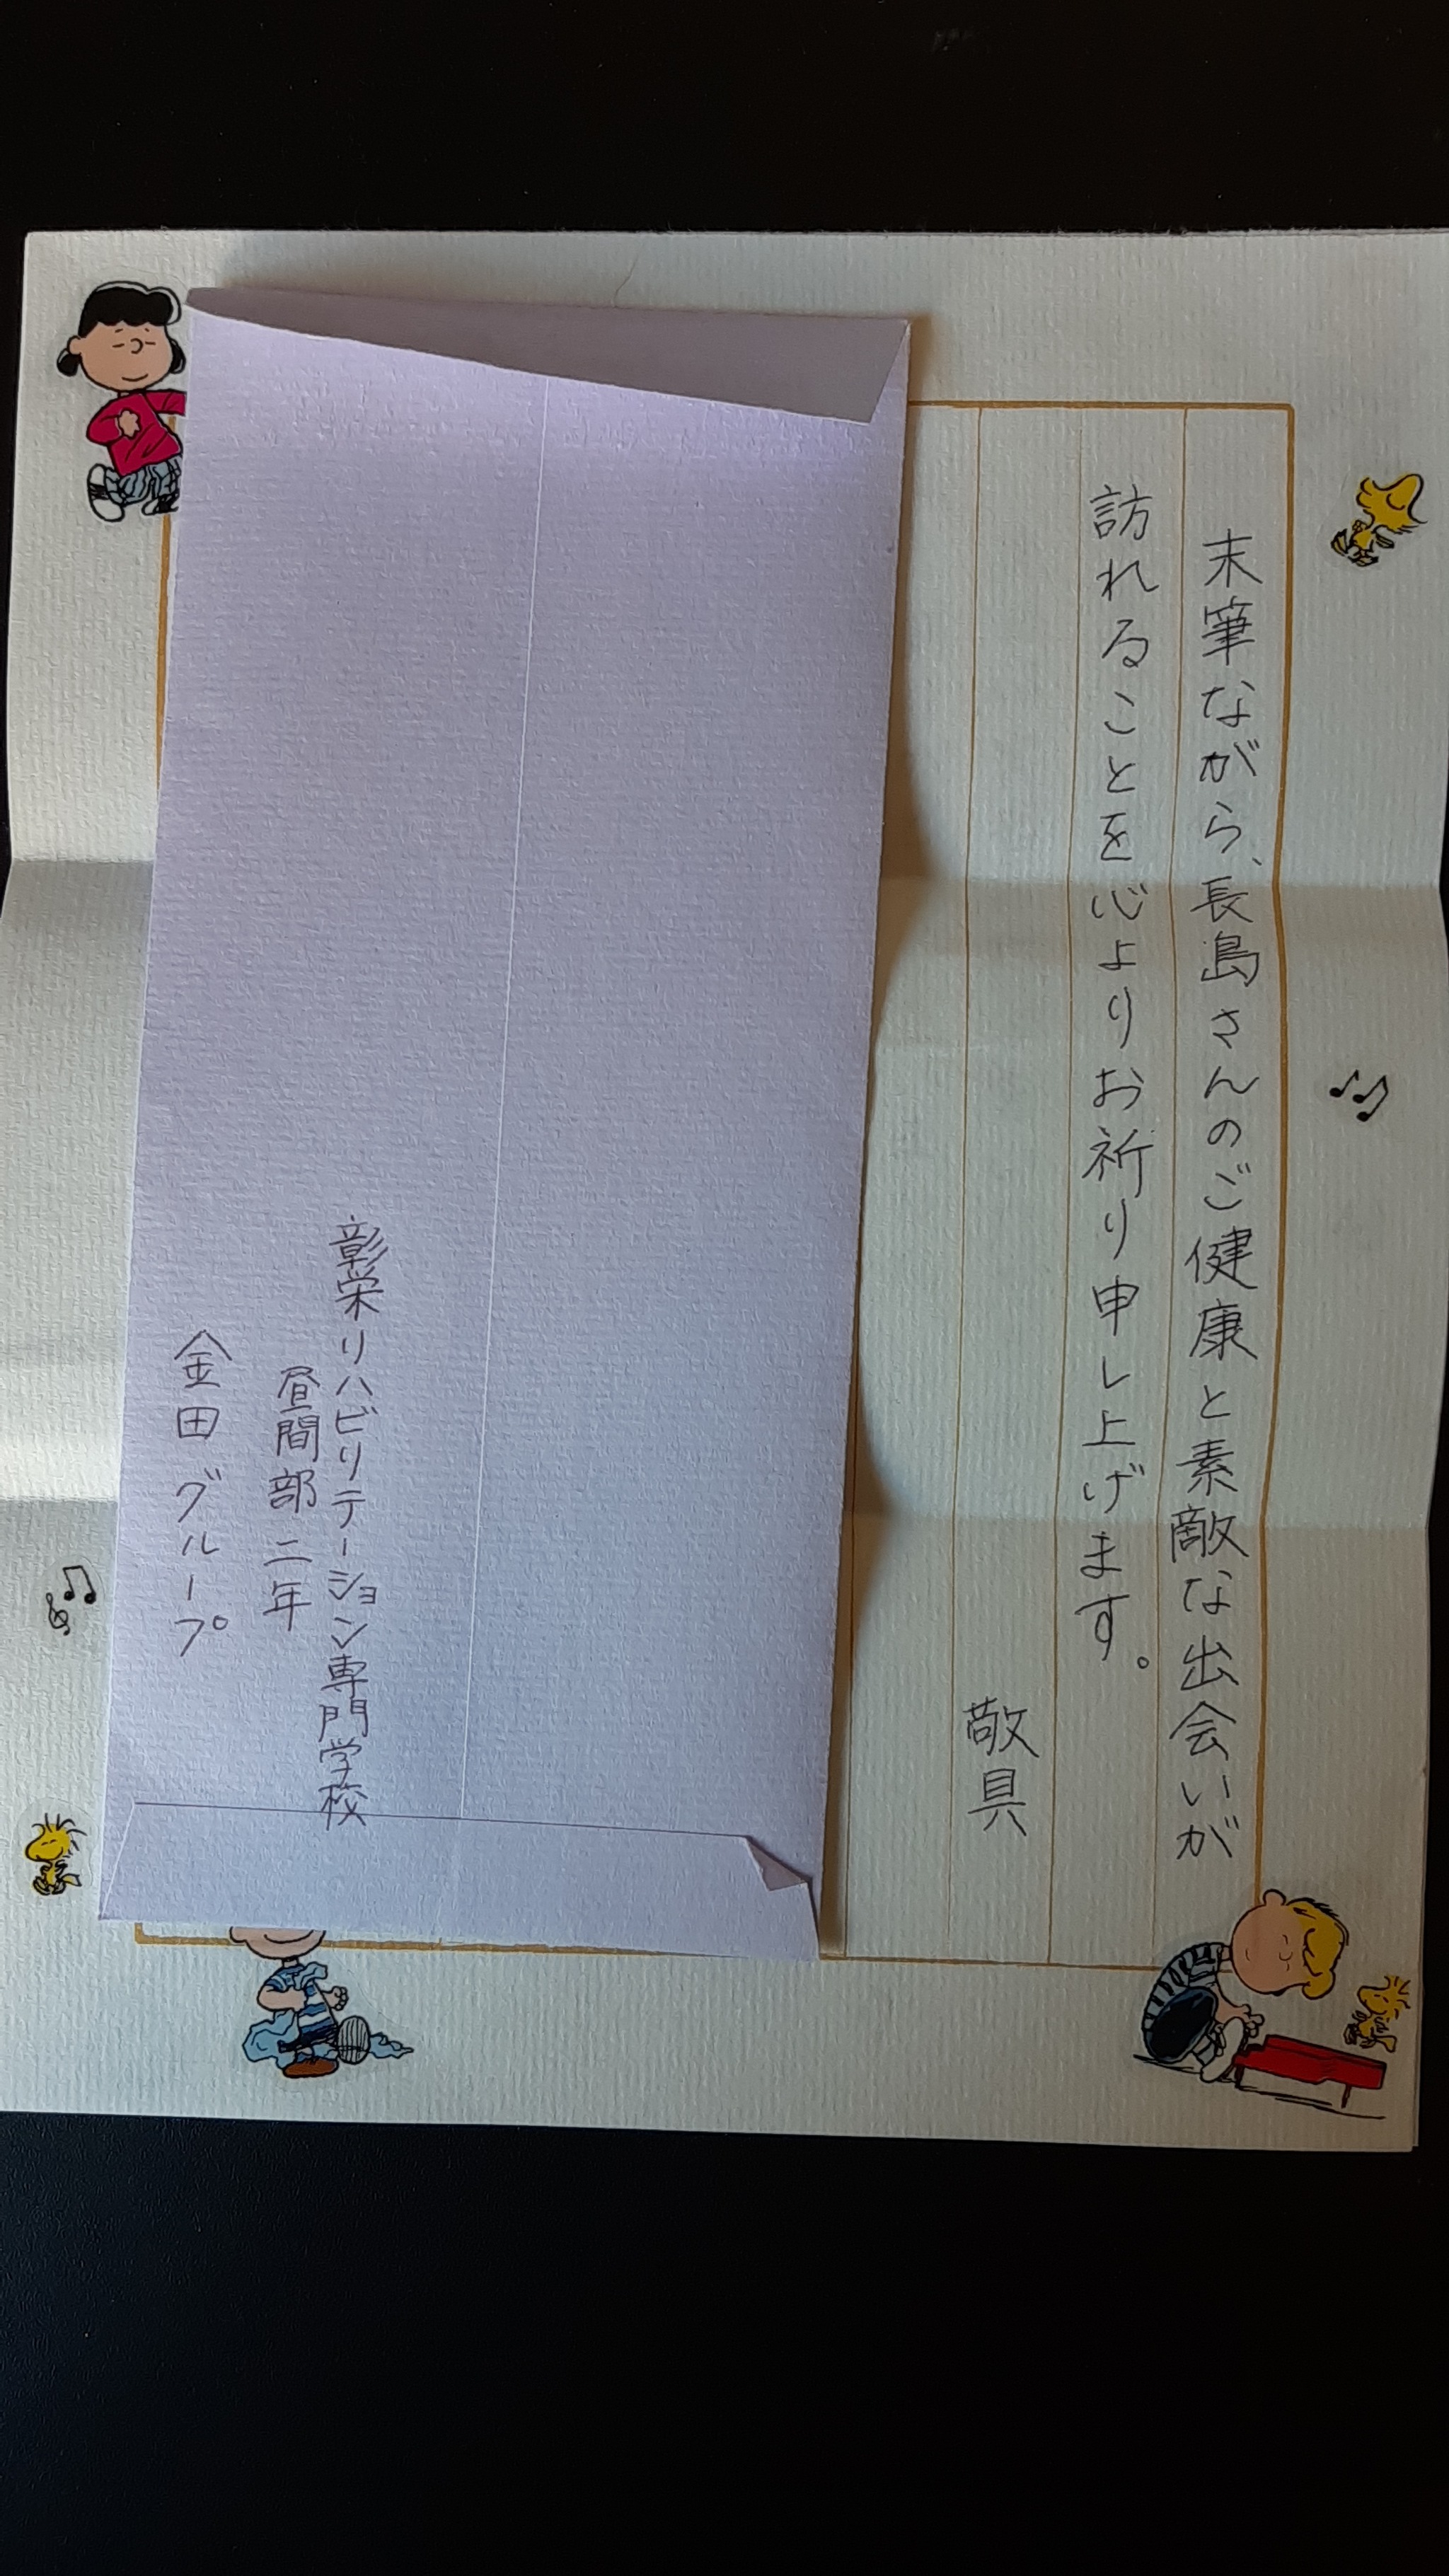 末筆ながら、長島さんのご健康と素敵な出会いが
訪れることを心よりお祈り申し上げます。
敬具
彰栄リハビリテーション専門学校
昼間部二年
金田グループ